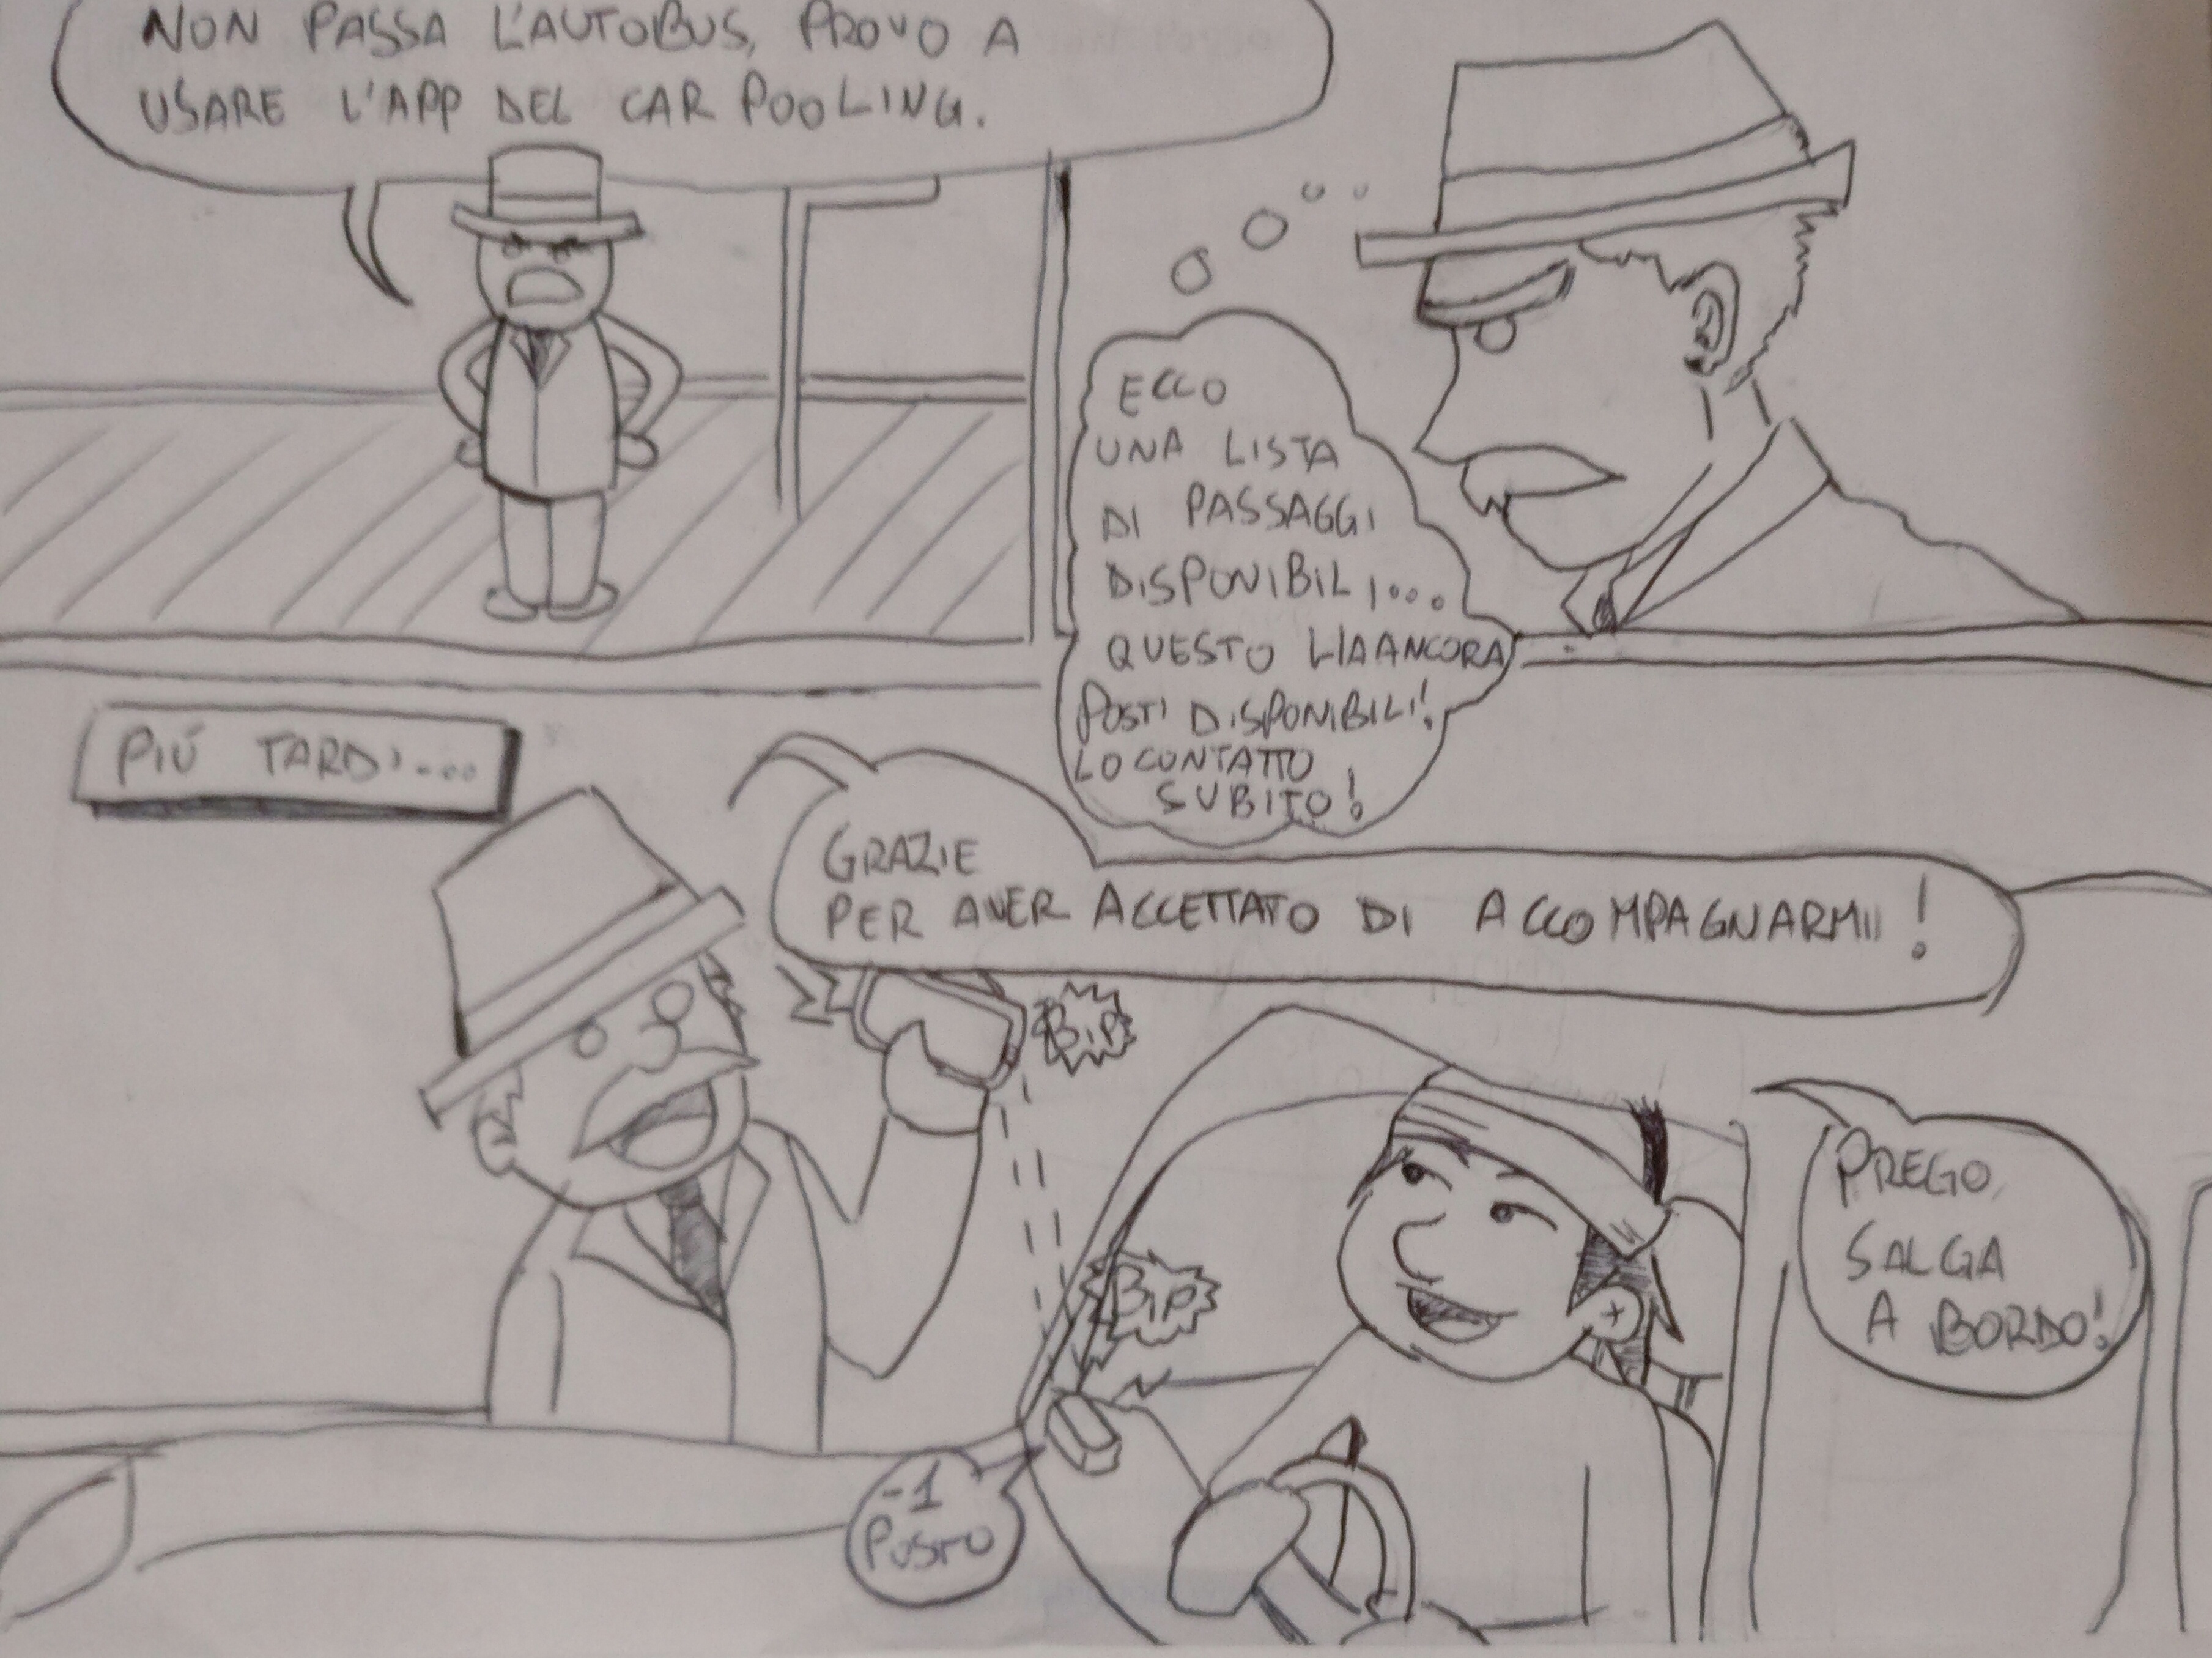 NON PASSA L'AUTOBUS, PROVO A
USARE L'APP DEL CAR POOLING.
ECCO
UNA LISTA
DI PASSAGGI
DISPONIBILI....
QUESTO L'HA ANCORA
POSTI DISPONIBILI!
LO CONTATTO
SUBITO!
PIÚ TARDI....
GRAZIE
PER AVER ACCETTATO DI ACCOMPAGNARMII!
BIP
BIP
PREGO,
SALGA
A BORDO!
-1
POSTO